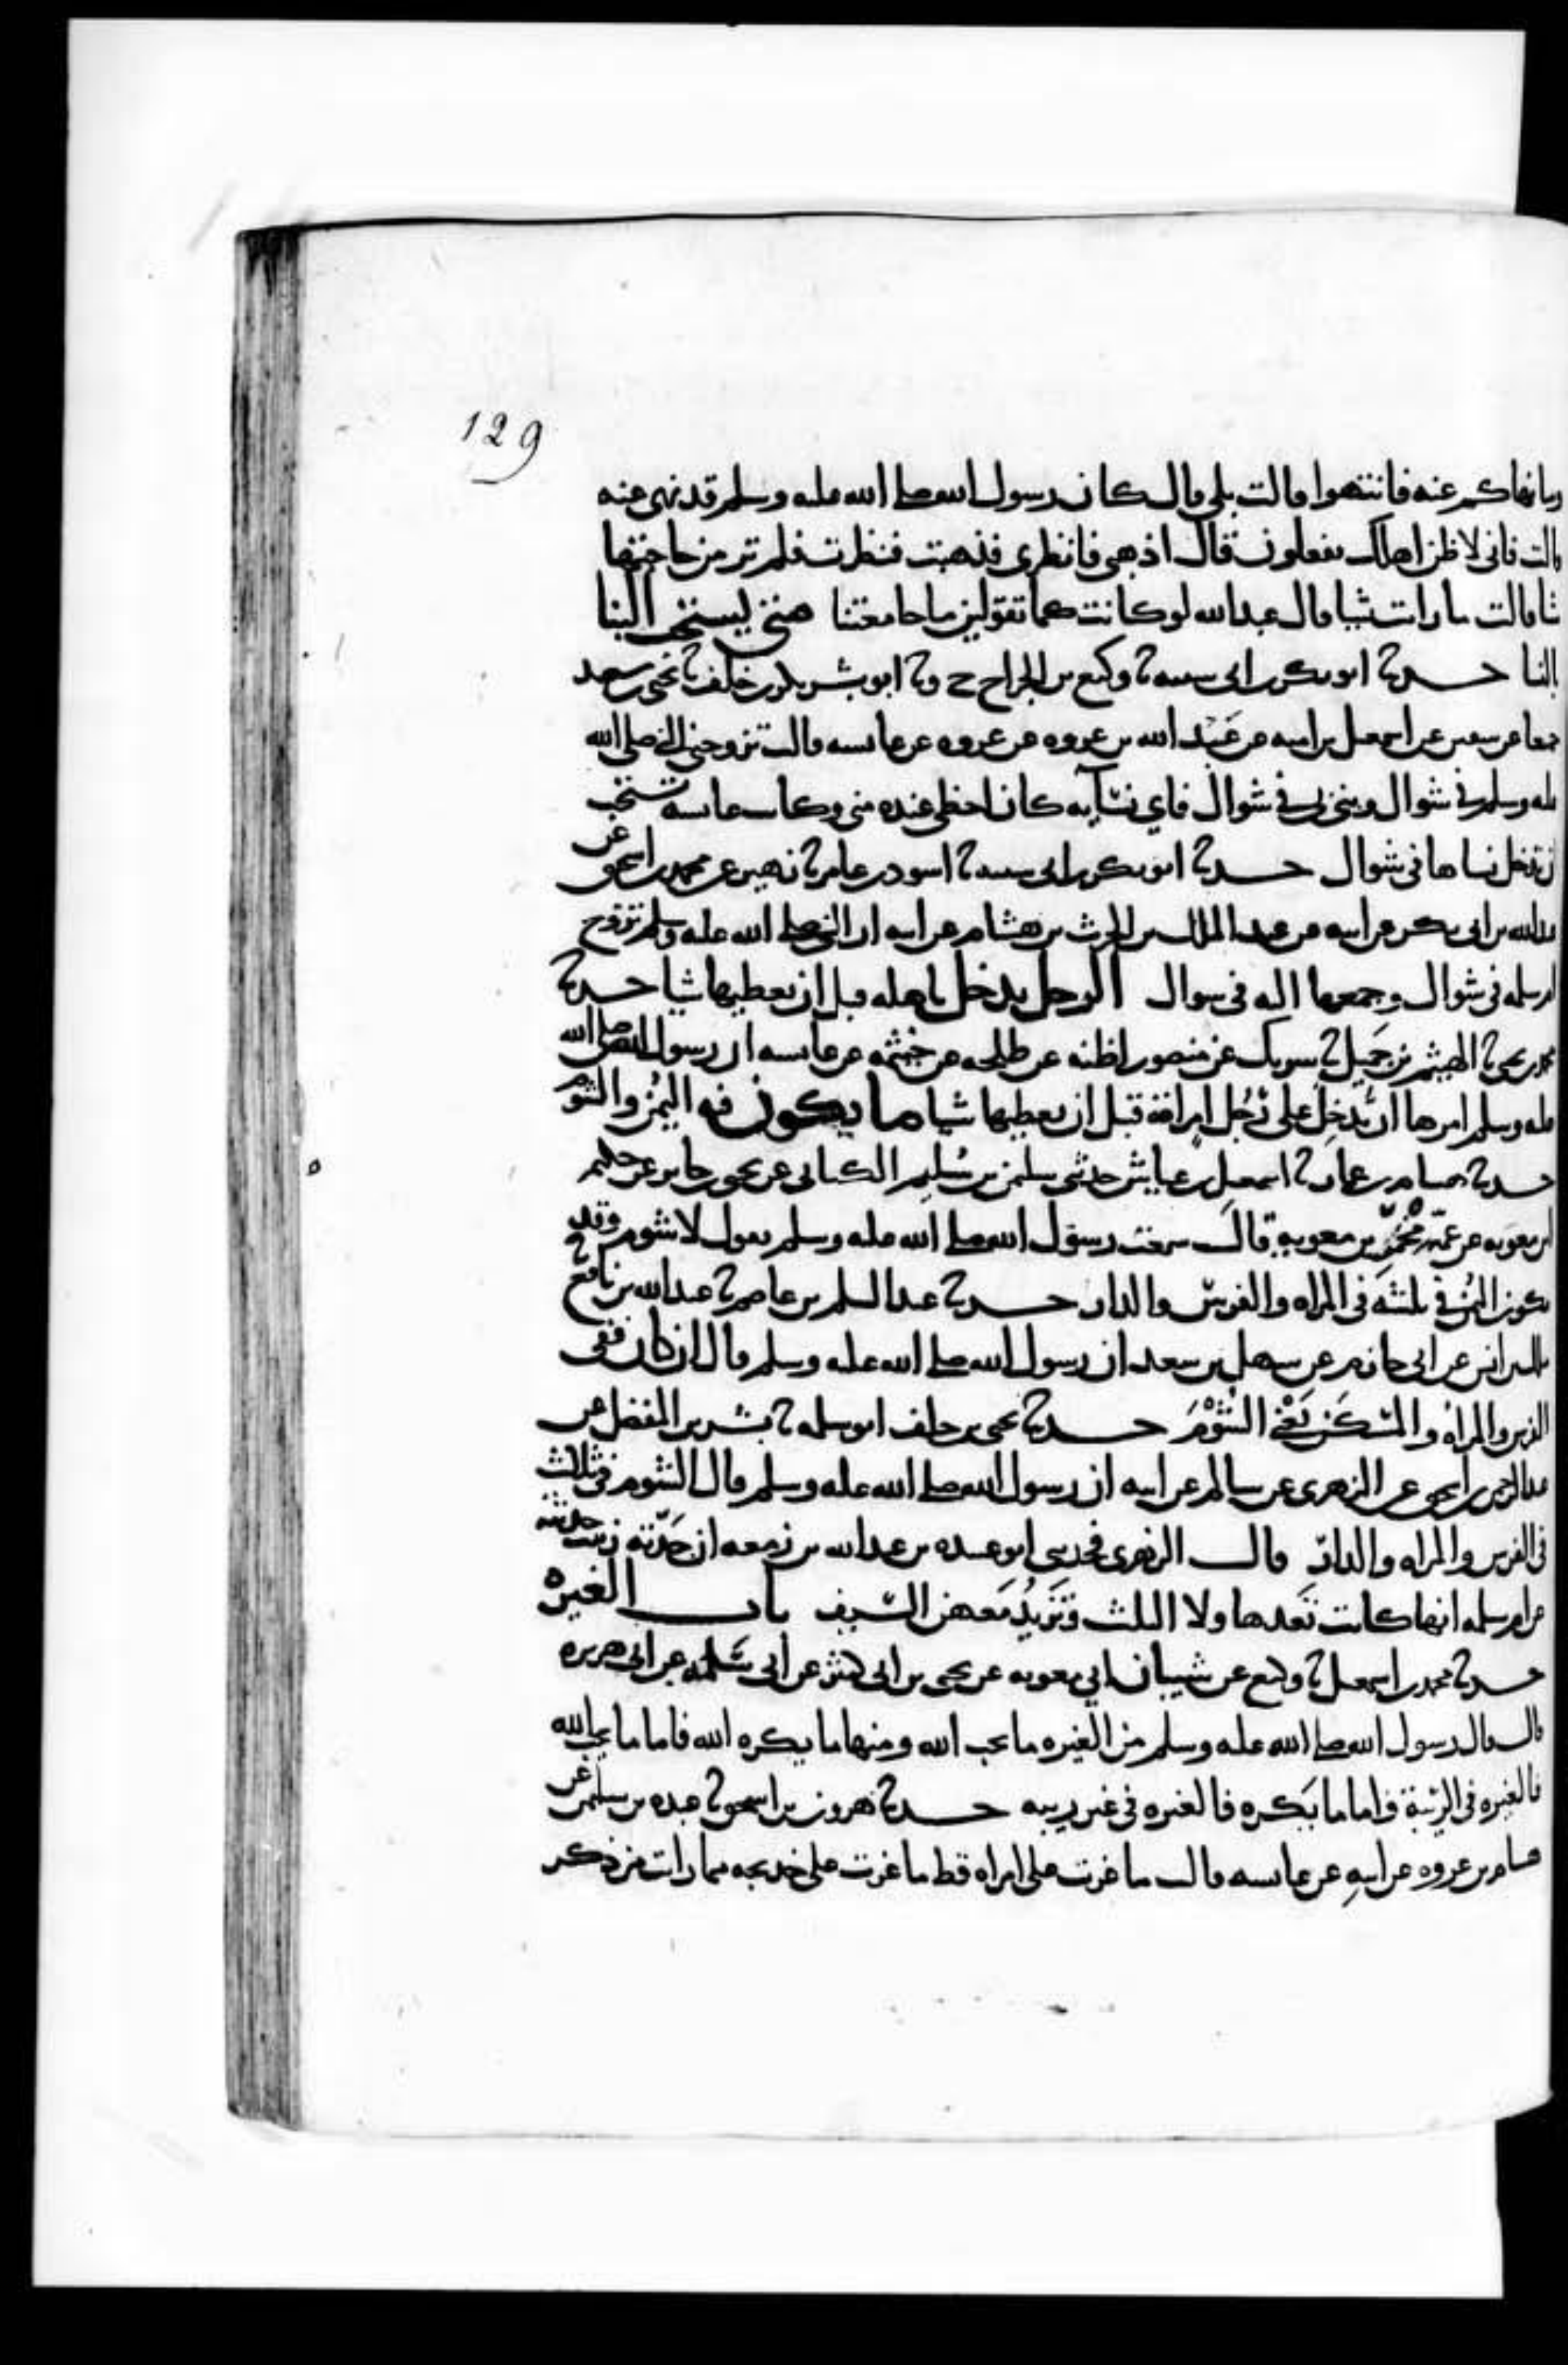 129
وما نهاكم عنه فانتهوا قالت بلى قال كان رسول الله صلى الله عليه وسلم قد نهى عنه
قالت فاني لاظن اهلك يفعلون قال اذهبي فانظري فذهبت فنظرت فلم تر من حاجتها
شيا قالت ما رات شيا قال عبد الله لو كانت كما تقولين ما جامعتنا متى يستحب البنا
بالنسا حدثنا ابو بكر بن ابي شيبه نا وكيع بن الجراح ح ونا ابو بشر بكر بن خلف نا يحيى بن سعيد
جميعا عن سفين عن اسمعيل بن اميه عن عبد الله بن عروه عن عروه عن عايشه قالت تزوجني النبي صلى الله
عليه وسلم في شوال وبنى بي في شوال فاي نسآيه كان احظى عنده مني وكانت عايشه تستحب
ان تدخل نساها في شوال حدثنا ابو بكر بن ابي شيبه نا اسود بن عامر نا زهير عن محمد بن اسحق عن
عبد الله بن ابي بكر عن ابيه عن عبد الملك بن الحرث بن هشام عن ابيه ان النبي صلى الله عليه وسلم تزوج
ام سلمه في شوال وجمعها اليه في شوال الرجل يدخل باهله قبل ان يعطيها شيا حدثنا
محمد بن يحيى نا الهيثم بن جميل نا شريك عن منصور اظنه عن طلحه عن خيثمه عن عايشه ان رسول الله صلى الله
عليه وسلم امرها ان تدخل على رجل امراته قبل ان يعطيها شيا ما يكون فيه اليمن والشوم
حدثنا هشام بن عمار نا اسمعيل بن عياش حدثني سليمن بن سليم الكناني عن يحيى بن جابر عن حكيم
ابن معويه عن عمه مخمر بن معوية قال سمعت رسول الله صلى الله عليه وسلم يقول لا شوم وقد
يكون اليمن في ثلثه في المراه والفرس والدار حدثنا عبد السلم بن عاصم نا عبد الله بن نافع نا
مالك بن انس عن ابي حازم عن سهل بن سعد ان رسول الله صلى الله عليه وسلم قال ان كان ففي
الفرس والمراة والمسكن يعني الشوم حدثنا يحيى بن خلف ابو سلمه نا بشر بن المفضل عن
عبد الرحمن بن اسحق عن الزهري عن سالم عن ابيه ان رسول الله صلى الله عليه وسلم قال الشوم في ثلاث
في الفرس والمراه والدار قال الزهري فحدثني ابو عبيده بن عبد الله بن زمعه ان جدته زينب حدثته
عن ام سلمه انها كانت تعدها ولا الثلث وتزيد معهن السيف باب الغيره
حدثنا محمد بن اسمعيل نا وكيع عن شيبان ابي معويه عن يحيى بن ابي كثير عن ابي سلمه عن ابي هريره
قال قال رسول الله صلى الله عليه وسلم من الغيره ما يحب الله ومنها ما يكره الله فاما ما يحب الله
فالغيره في الريبة واما ما يكره فالغيره في غير ريبه حدثنا هرون بن اسحق نا عبده بن سليمن عن
هشام بن عروه عن ابيه عن عايشه قالت ما غرت على امراه قط ما غرت على خديجه مما رات من ذكر